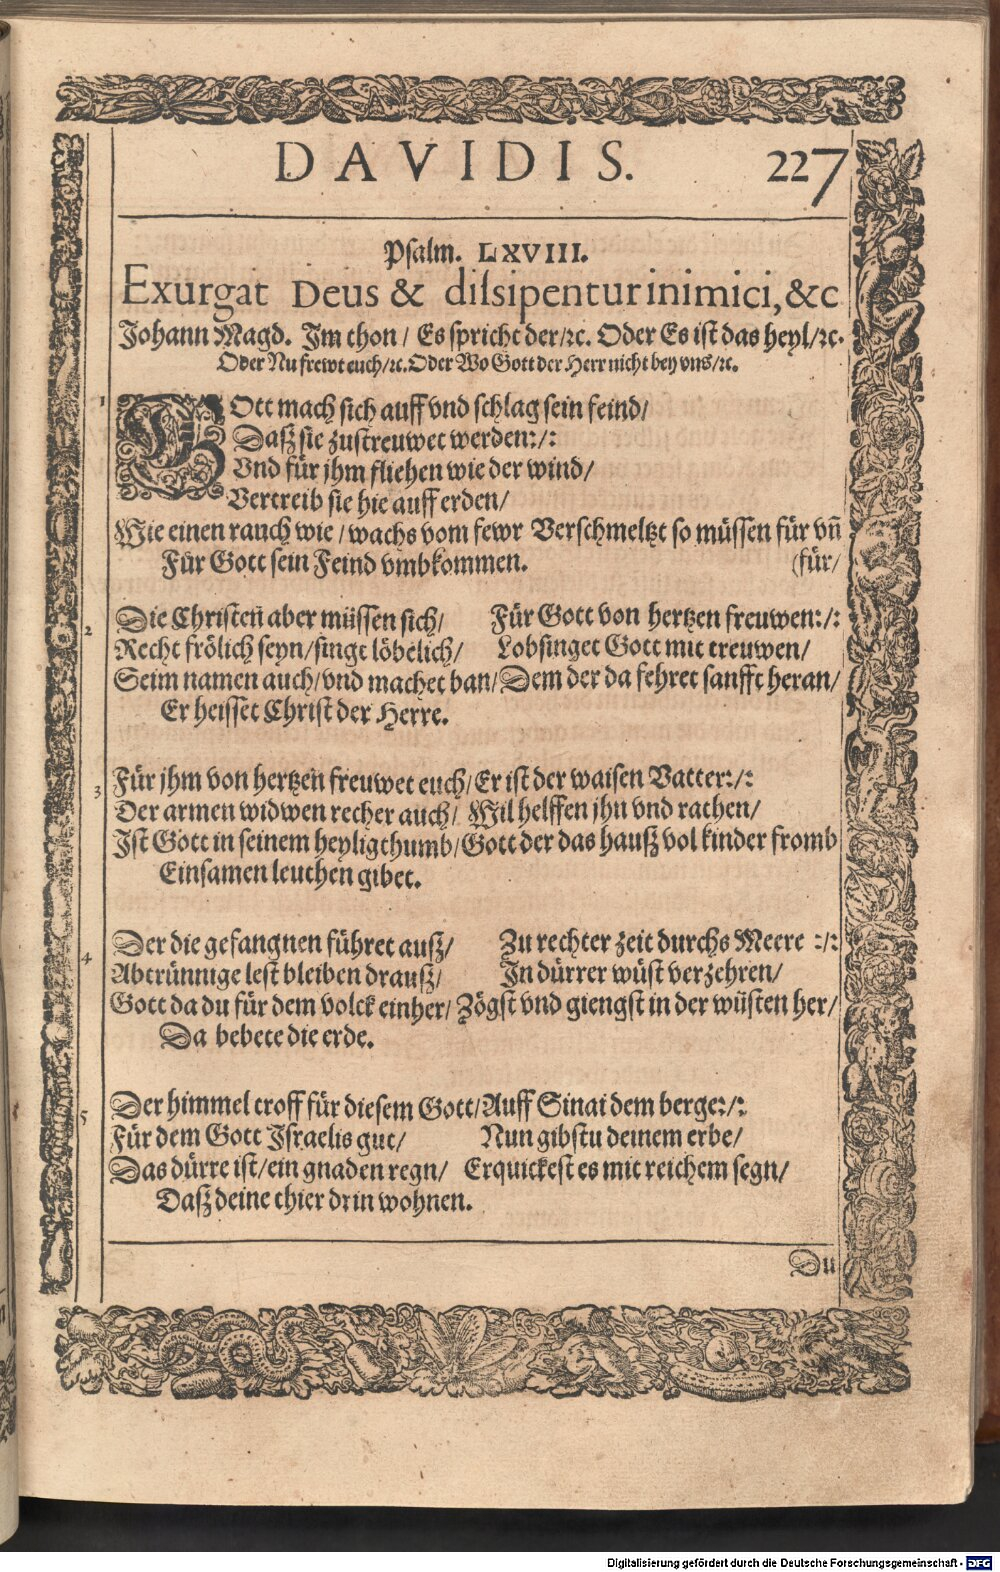 DAVIDIS. 227
Psalm. LXVIII.
Exurgat Deus & dissipentur inimici, &c
Johann Magd. Im thon / Es spricht der / ꝛc. Oder Es ist das heyl / ꝛc.
Oder Nu frewt euch / ꝛc. Oder Wo Gott der Herr nicht bey vns / ꝛc.
1 GOtt mach sich auff vnd schlag sein feind /
Dasz sie zustreuwet werden: / :
Vnd für jhm fliehen wie der wind /
Vertreib sie hie auff erden /
Wie einen rauch wie / wachs vom fewr Verschmeltzt so müssen für vñ
Für Gott sein Feind vmbkommen. (für /
2 Die Christen aber müssen sich / Für Gott von hertzen freuwen: / :
Recht frölich seyn / singt löbelich / Lobsinget Gott mit treuwen /
Seim namen auch / vnd machet ban / Dem der da fehret sanfft heran /
Er heisset Christ der Herre.
3 Für jhm von hertzen freuwet euch / Er ist der waisen Vatter: / :
Der armen widwen recher auch / Wil helffen jhn vnd rathen /
Ist Gott in seinem heyligthumb / Gott der das hausz vol kinder fromb
Einsamen leuthen gibet.
4 Der die gefangnen führet ausz / Zu rechter zeit durchs Meere : / :
Abtrünnige lest bleiben drausz / In dürrer wüst verzehren /
Gott da du für dem volck einher / Zögst vnd giengst in der wüsten her /
Da bebete die erde.
5 Der himmel troff für diesem Gott / Auff Sinai dem berge: / :
Für dem Gott Israelis gut / Nun gibstu deinem erbe /
Das dürre ist / ein gnaden regn / Erquickest es mit reichem segn /
Dasz deine thier drin wohnen.
Du
Digitalisierung gefördert durch die Deutsche Forschungsgemeinschaft - DFG